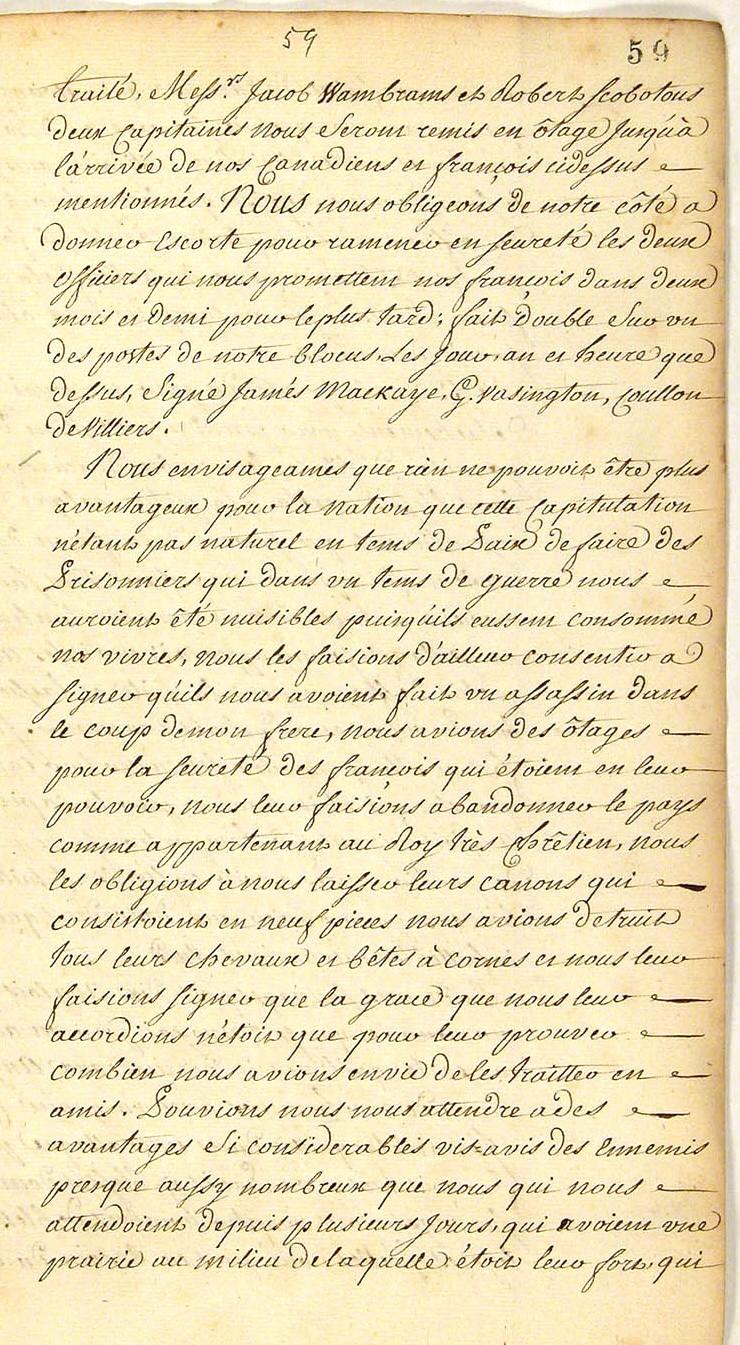 59
59
traité, Mess.rs Jacob Wambrams et Robert scobotous
deux Capitaines nous seront remis en ôtage Jusqu'à
l'arrivée de nos Canadiens et françois cidessus
mentionnés. Nous nous obligeons de notre côté a
donner Escorte pour ramener en seureté les deux
officiers qui nous promettent nos francois dans deux
mois et demi pour leplus tard; fait Double sur un
des postes de notre blocus, Les Jour, an et heure que
dessus, signé Jamés Mackaye, G. Vasington, Coullon
deVilliers.
Nous envisageames que rien ne pouvoit être plus
avantageux pour la nation que cette Capitulation
n'etant pas naturel en tems de Paix de faire des
Prisonniers qui dans un tems de guerre nous
auroient été nuisibles puisqu'ils eussent consommé
nos vivres, nous les faisions d'ailleur consentir a
signer qu'ils nous avoient fait un assassin dans
le coup demon frere, nous avions des ôtages
pour la seureté des francois qui étoient en leur
pouvoir, nous leur faisions abandonner le pays
comme appartenant au Roy très Chrêtien, nous
les obligions à nous laisser leurs canons qui
consistoient en neuf pieces nous avions detruit
tous leurs chevaux et bêtes à cornes et nous leur
faisions signer que la grace que nous leur
accordions n'étoit que pour leur prouver
combien nous avions envie de les traitter en
amis. Pouvions nous nous attendre a des
avantages si considerables vis=avis des Ennemis
presque aussy nombreux que nous qui nous
attendoient depuis plusieurs Jours, qui avoient une
prairie au milieu de laquelle étoit leur fort, qui